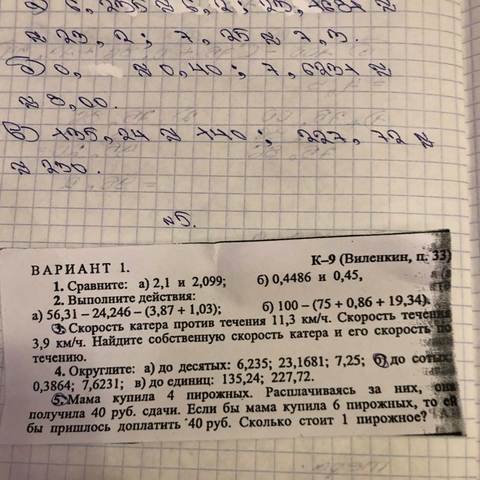 а) 6,235 ≈ 6,2; 23,1681 ≈
≈ 23,2; 7,25 ≈ 7,3.
б) 0, ≈ 0,40; 7,6231 ≈
≈ 8,00.
в) 135,24 ≈ 140; 227,72 ≈
≈ 230.
№5.
К–9 (Виленкин, п. 33)
ВАРИАНТ 1.
1. Сравните: а) 2,1 и 2,099; б) 0,4486 и 0,45,
2. Выполните действия:
а) 56,31 – 24,246 – (3,87 + 1,03); б) 100 – (75 + 0,86 + 19,34).
3. Скорость катера против течения 11,3 км/ч. Скорость течения
3,9 км/ч. Найдите собственную скорость катера и его скорость по
течению.
4. Округлите: а) до десятых: 6,235; 23,1681; 7,25; б) до сотых:
0,3864; 7,6231; в) до единиц: 135,24; 227,72.
5. Мама купила 4 пирожных. Расплачиваясь за них, она
получила 40 руб. сдачи. Если бы мама купила 6 пирожных, то ей
бы пришлось доплатить 40 руб. Сколько стоит 1 пирожное?